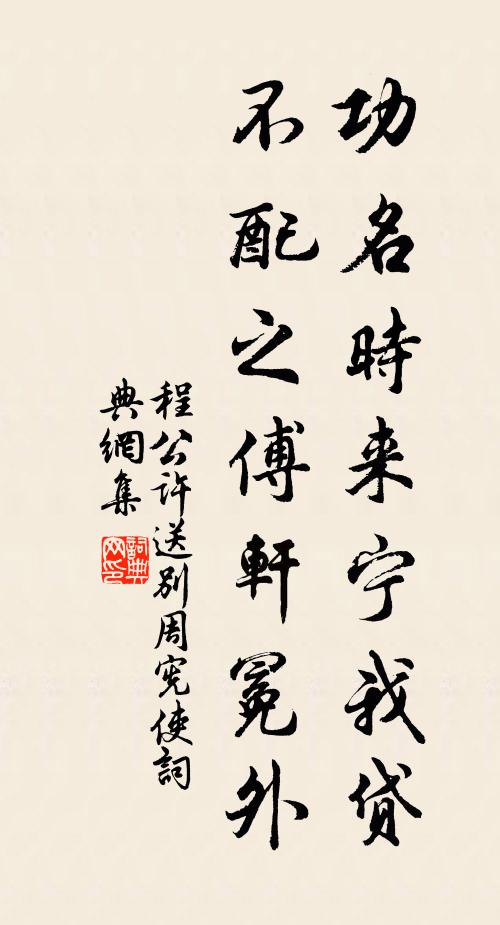 功名時来宁我貸
不配之傅軒冕外
程公許送別周宪使詞
典網集
詞典网印